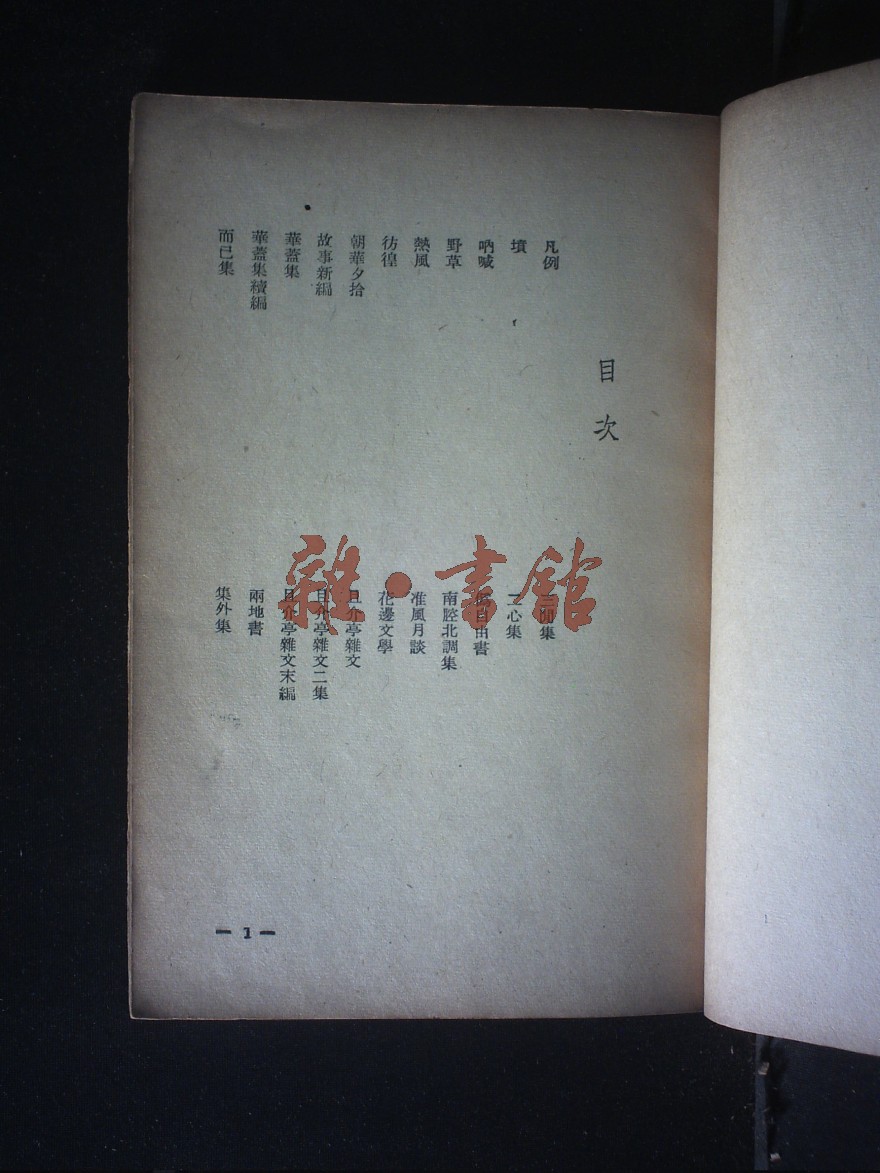 目次
凡例
墳
吶喊
野草
熱風
彷徨
朝華夕拾
故事新編
華蓋集
華蓋集續編
而已集
三閒集
二心集
自由書
南腔北調集
准風月談
花邊文學
且介亭雜文
且介亭雜文二集
且介亭雜文末編
兩地書
集外集
— 1 —
雜·書館